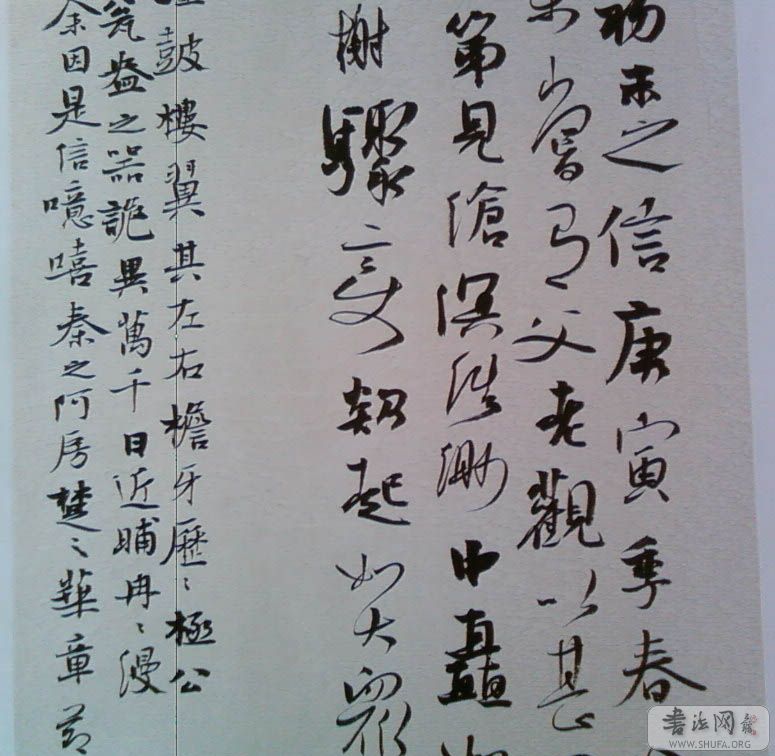 初未之信庚寅季春
未嘗有父老觀以甚
第見滄溟浩渺中矗
榭驟變欻起如大衆
鼓樓翼其左右檐牙歷〻極公
瓮盎之器詭異萬千日近晡冉〻漫
余因是信噫嘻秦之阿房楚〻華章
书法网
WWW.SHUFA.ORG